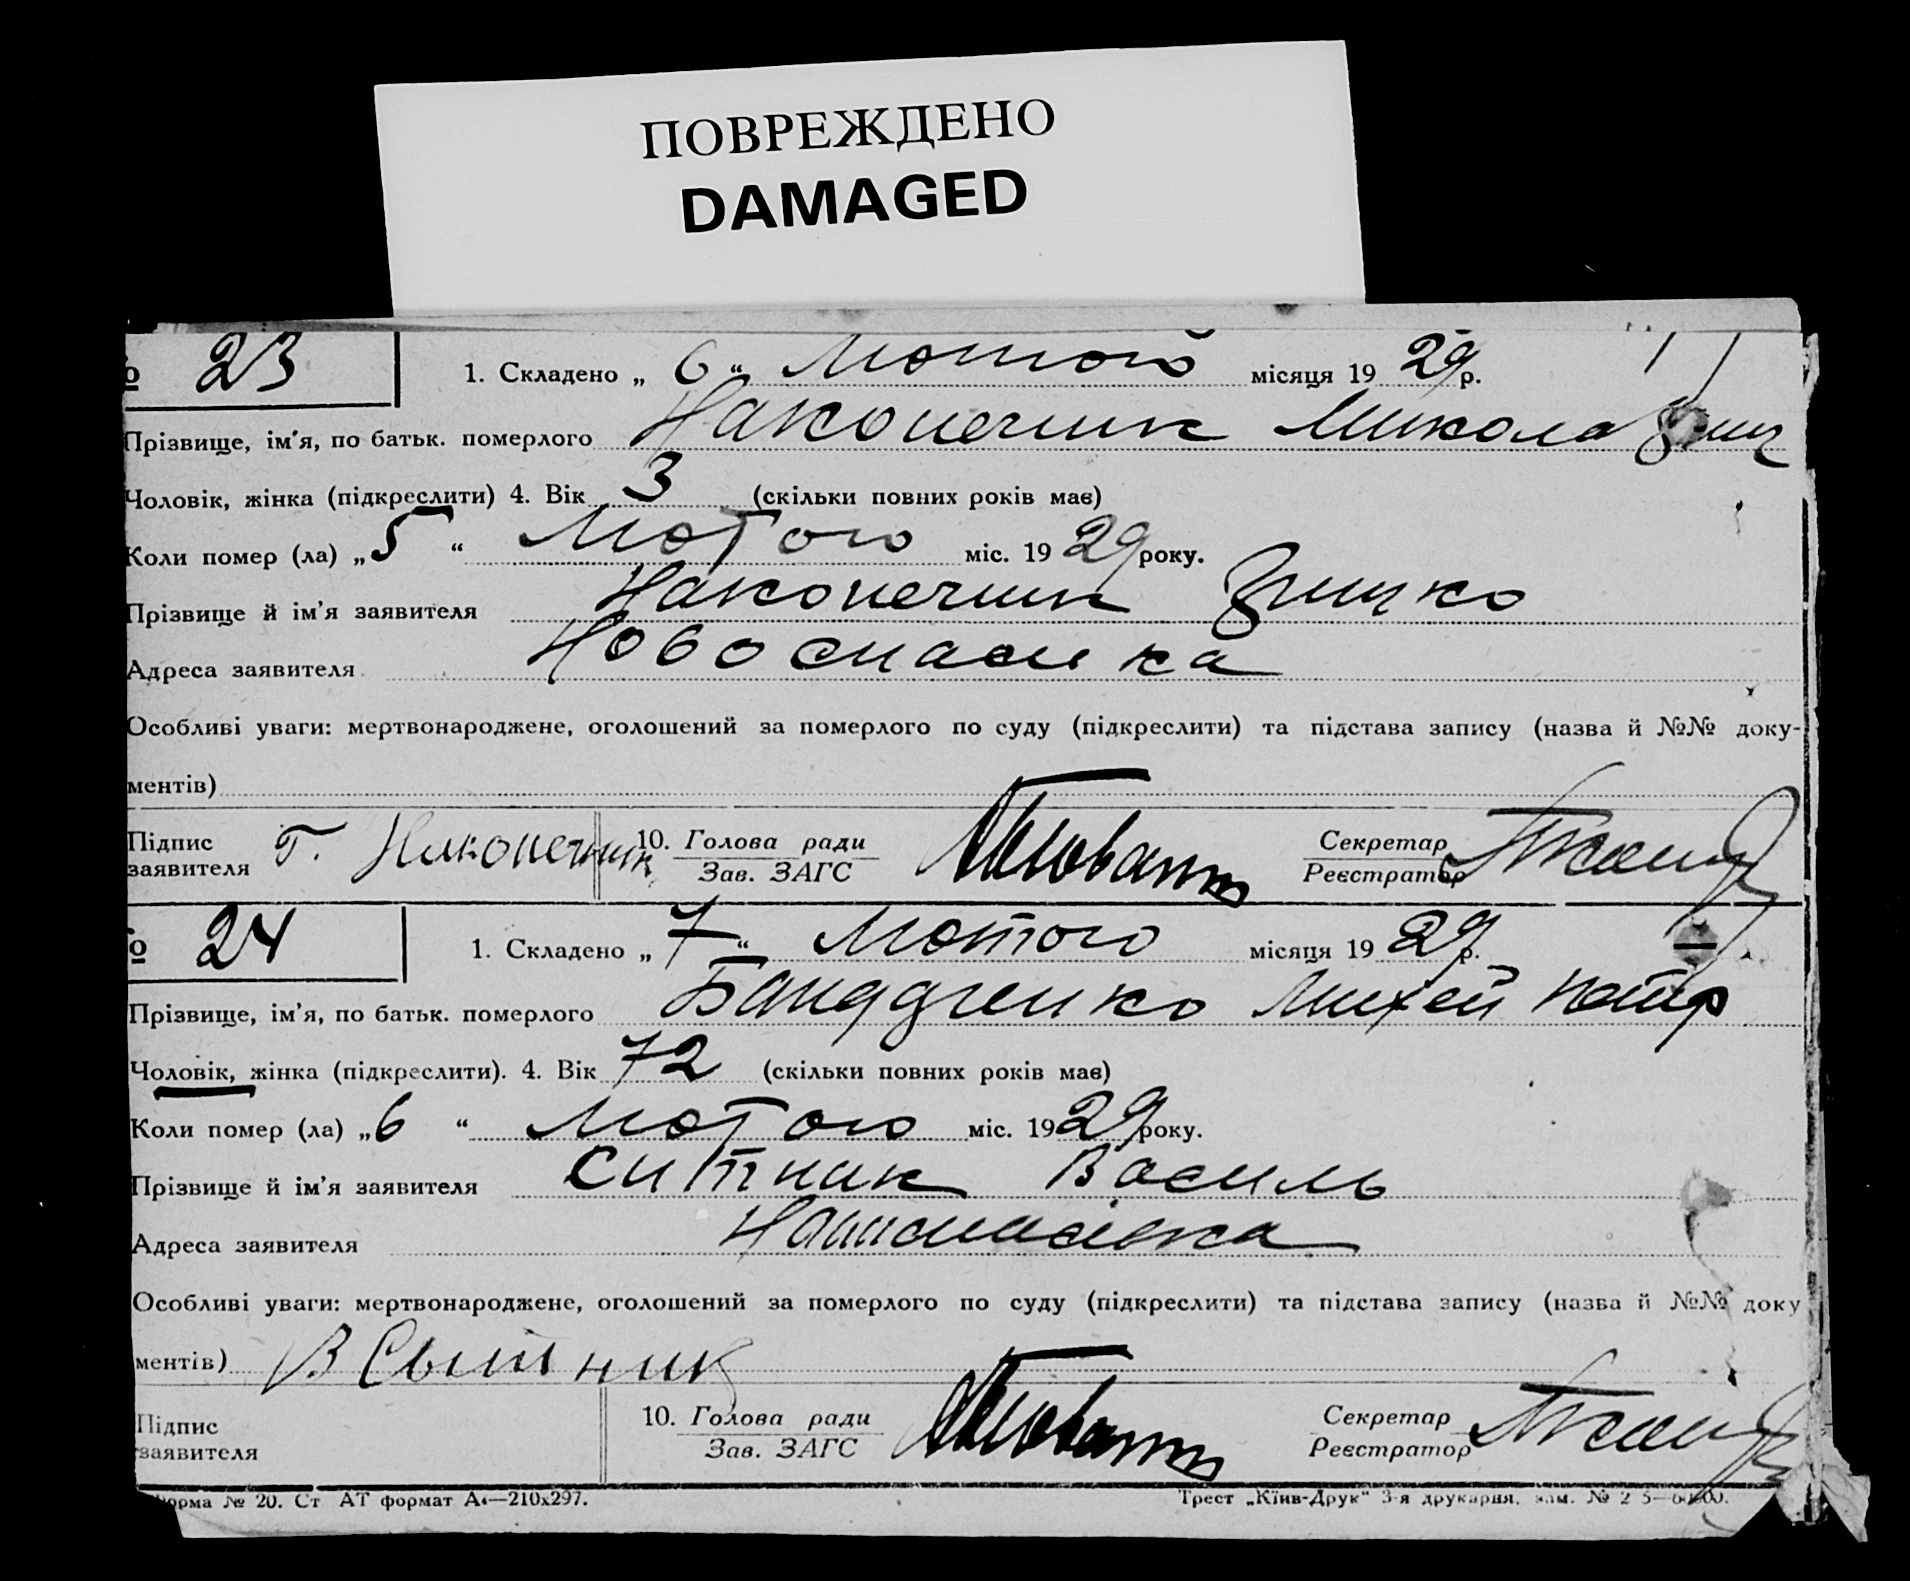 ПОВРЕЖДЕНО
DAMAGED
№ 23
1. Складено „ 6 “ Лютого місяця 19 29 р.
Прізвище, ім'я, по батьк. померлого Наконечник Микола Гриц
Чоловік, жінка (підкреслити) 4. Вік 3 (скільки повних років має)
Коли помер (ла) „ 5 “ Лютого міс. 19 29 року.
Прізвище й ім'я заявителя Наконечник Грицко
Адреса заявителя Новоспаська
Особливі уваги: мертвонароджене, оголошений за померлого по суду (підкреслити) та підстава запису (назва й №№ доку-
ментів)
Підпис заявителя Г. Наконечник 10. Голова ради Зав. ЗАГС Секретар Реєстратор
№ 24
1. Складено „ 7 “ Лютого місяця 19 29 р.
Прізвище, ім'я, по батьк. померлого Михей Петр
Чоловік, жінка (підкреслити). 4. Вік 72 (скільки повних років має)
Коли помер (ла) „ 6 “ Лютого міс. 19 29 року.
Прізвище й ім'я заявителя Ситник Василь
Адреса заявителя
Особливі уваги: мертвонароджене, оголошений за померлого по суду (підкреслити) та підстава запису (назва й №№ доку
ментів) В Сытник
Підпис заявителя 10. Голова ради Зав. ЗАГС Секретар Реєстратор
форма № 20. Ст АТ формат А4—210х297. Трест „Київ-Друк“ 3-я друкарня. зам. №